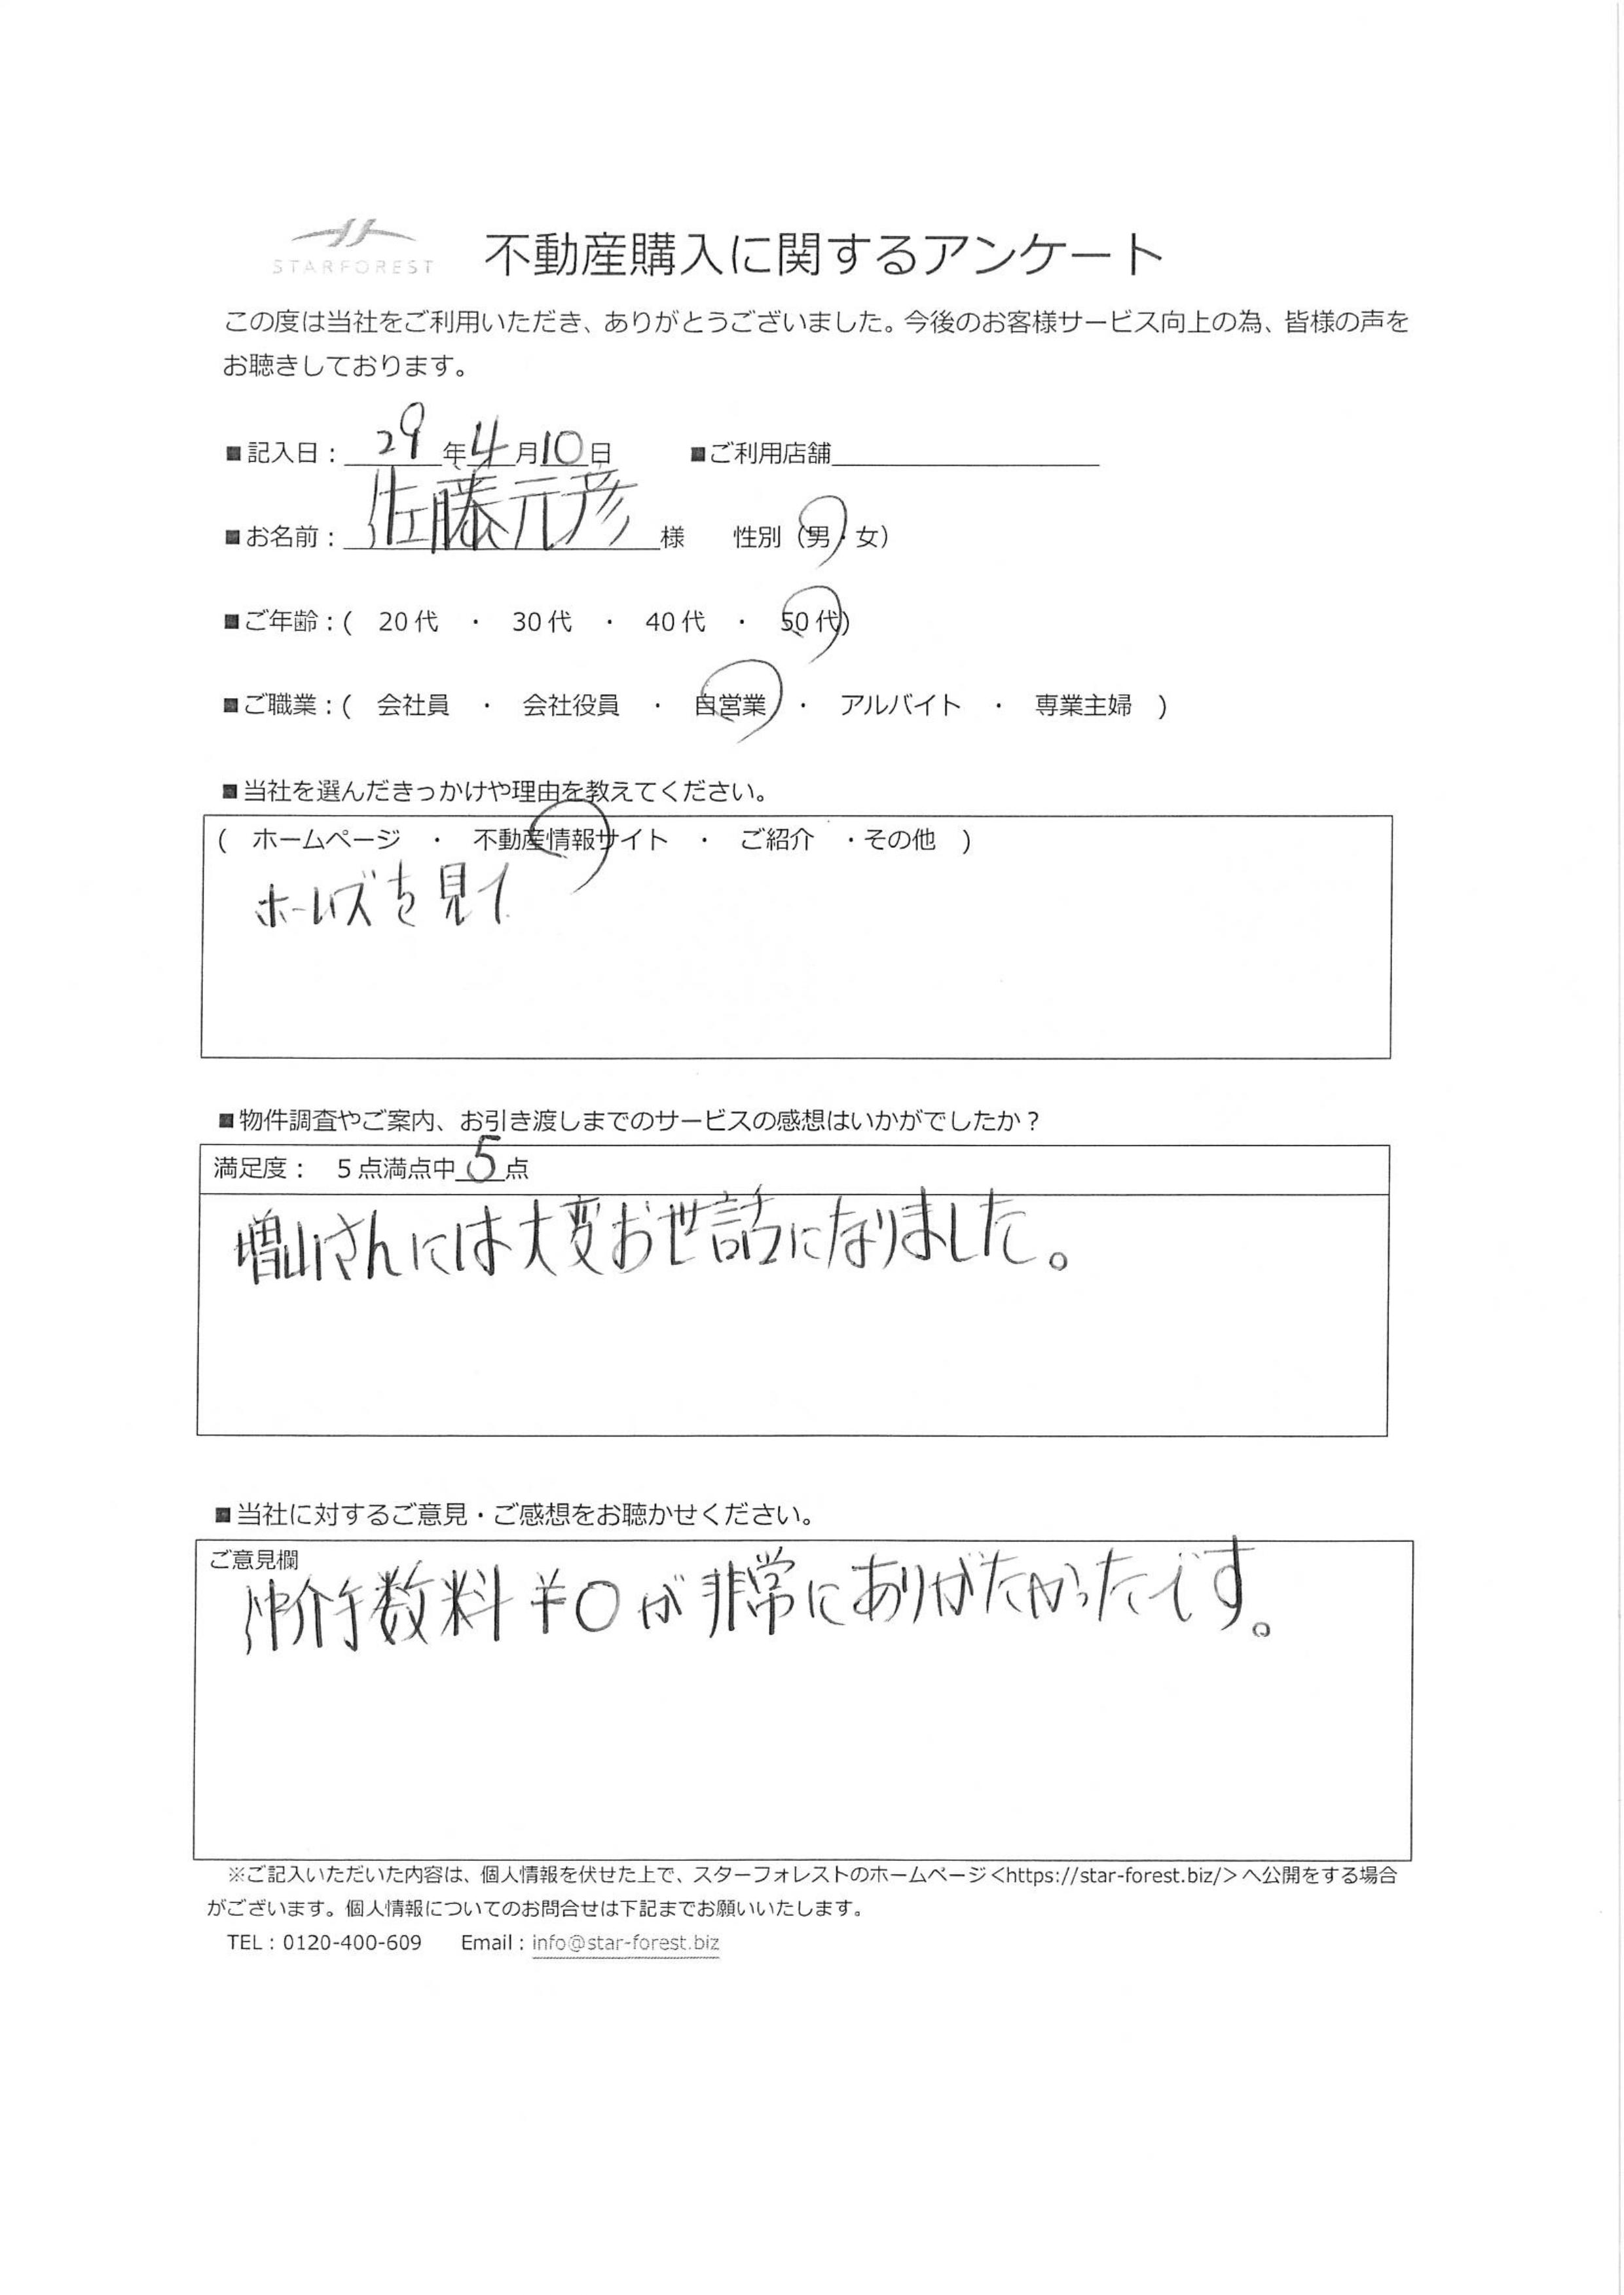 STARFOREST 不動産購入に関するアンケート
この度は当社をご利用いただき、ありがとうございました。今後のお客様サービス向上の為、皆様の声を
お聴きしております。
■記入日：29年4月10日 ■ご利用店舗
■お名前：佐藤元彦様 性別（男・女）
■ご年齢：( 20代 ・ 30代 ・ 40代 ・ 50代)
■ご職業：( 会社員 ・ 会社役員 ・ 自営業 ・ アルバイト ・ 専業主婦 )
■当社を選んだきっかけや理由を教えてください。
( ホームページ ・ 不動産情報サイト ・ ご紹介 ・その他 )
ホームズを見て
■物件調査やご案内、お引き渡しまでのサービスの感想はいかがでしたか？
満足度： 5点満点中5点
増山さんには大変お世話になりました。
■当社に対するご意見・ご感想をお聴かせください。
ご意見欄
仲介手数料¥0が非常にありがたかったです。
※ご記入いただいた内容は、個人情報を伏せた上で、スターフォレストのホームページ<https://star-forest.biz/>へ公開をする場合
がございます。個人情報についてのお問合せは下記までお願いいたします。
TEL：0120-400-609 Email：info@star-forest.biz